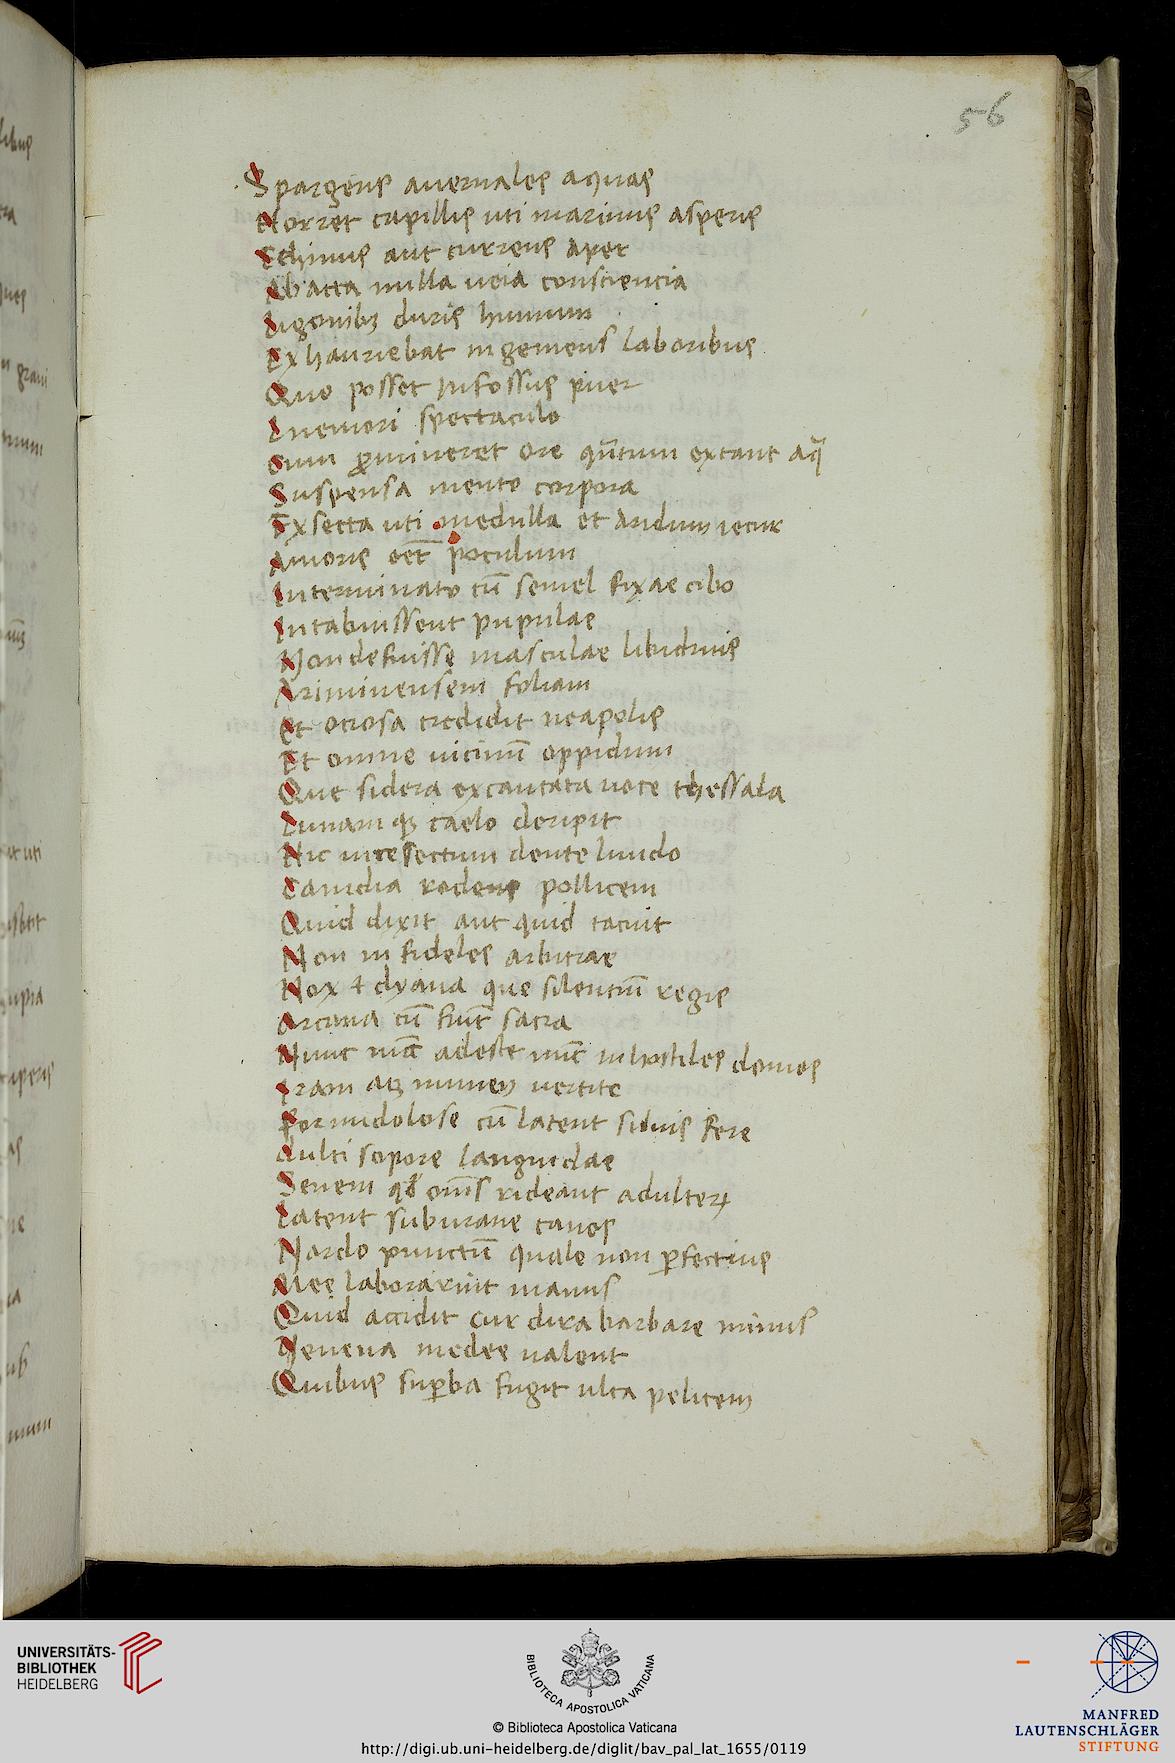 56
Spargens auernales aquas
Horret capillis uti marinus asperis
Echinus aut currens aper
Abacta nulla ueia consciencia
Ligonibꝫ duris humum
Exhauriebat ingemens laboribus
Quo posset infossus puer
Inemori spectaculo
Cum ꝓmineret ore quãtum extant aq̃
Suspensa mento corpora
Exsecta uti medulla et aridum iecur
Amoris eẽt poculum
Interminato cũ semel fixae cibo
Intabuissent pupulae
Non defuisse masculae libidinis
Ariminensem foliam
Et ociosa credidit neapolis
Et omne uicinũ oppidum
Que sidera excantata uoce thessala
Lunam qꝫ caelo deripit
Hic irresectum dente liuido
Canidia rodens pollicem
Quid dixit aut quid tacuit
Non infideles arbitrae
Nox & dyana que silentiũ regis
Arcana cũ fiũt sacra
Nunc nũc adeste nũc in hostiles domos
Iram atqꝫ numen uertite
Formidolose cũ latent siluis fere
Dulci sopore languidae
Senem qđ oms̃ rideant adulteꝝ
Latent suburane canes
Nardo punctũ quale non ꝑfectius
Mee laborarint manus
Quid accidit cur dira barbare minus
Venena medee ualent
Quibus suꝑba fugit ulta pelicem
UNIVERSITÄTS-
BIBLIOTHEK
HEIDELBERG
BIBLIOTECA APOSTOLICA VATICANA
© Biblioteca Apostolica Vaticana
http://digi.ub.uni-heidelberg.de/diglit/bav_pal_lat_1655/0119
MANFRED
LAUTENSCHLÄGER
STIFTUNG